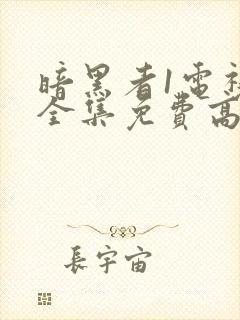 暗黑者1電視
全集免費高
長宇宙